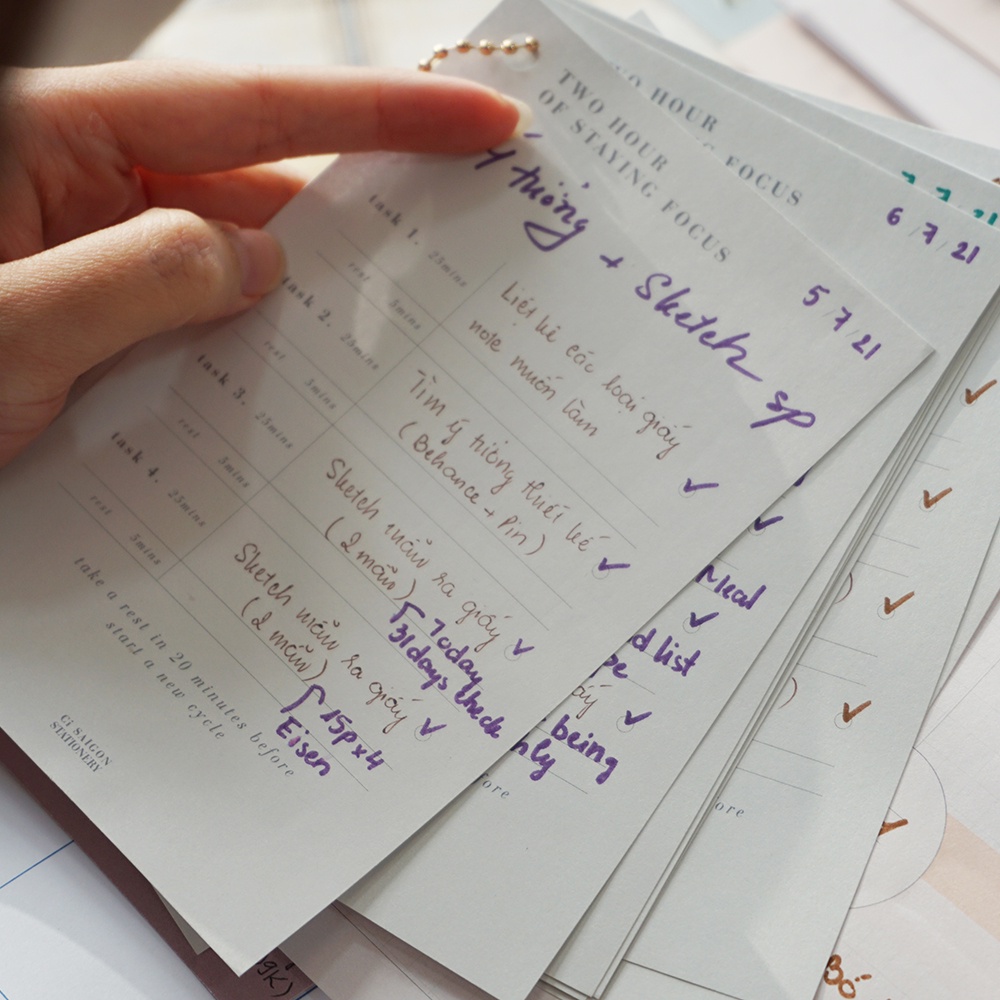 TWO HOUR
OF STAYING FOCUS
5/7/21
Ý tưởng + Sketch sp
task 1. 25mins
rest 5mins
Liệt kê các loại giấy
note muốn làm
task 2. 25mins
rest 5mins
Tìm ý tưởng thiết kế
(Behance + Pin)
task 3. 25mins
rest 5mins
Sketch mẫu ra giấy
(2 mẫu)
Today
31days check
task 4. 25mins
rest 5mins
Sketch mẫu ra giấy
(2 mẫu)
15p x4
Eisen
take a rest in 20 minutes before
start a new cycle
Ci SAIGON
STATIONERY
HOUR
FOCUS
6/7/21
d list
being
ore
7 7 21
ore